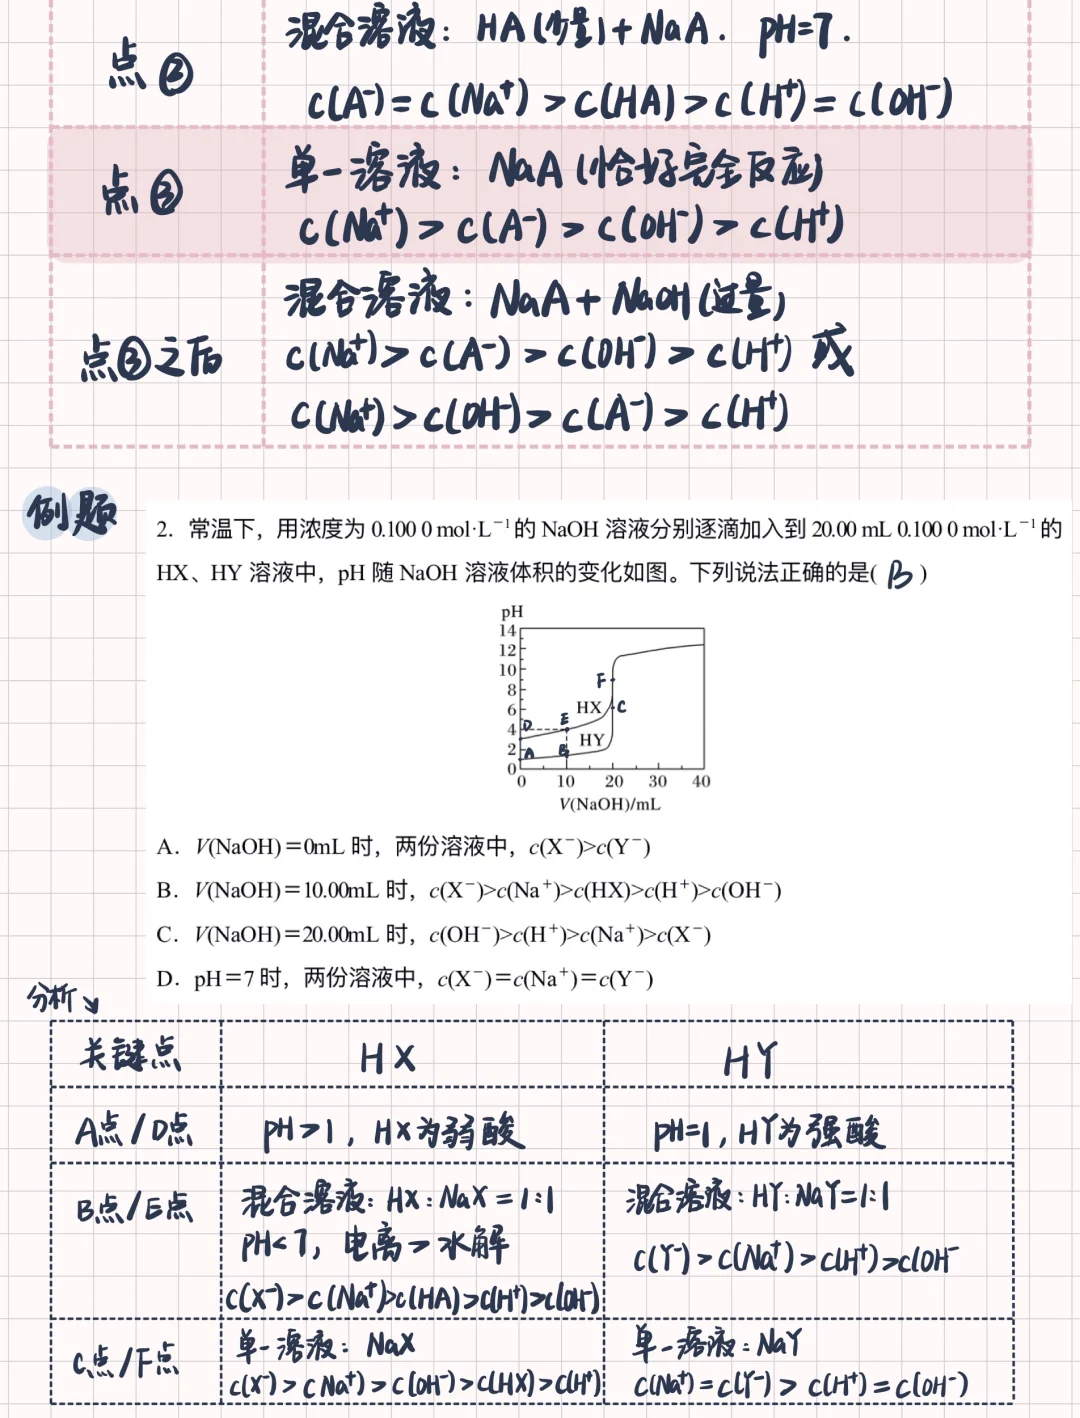 混合溶液：HA(少量)+NaA. pH=7.
点②
c(A⁻)=c(Na⁺)>c(HA)>c(H⁺)=c(OH⁻)
单一溶液：NaA(恰好完全反应)
点③
c(Na⁺)>c(A⁻)>c(OH⁻)>c(H⁺)
混合溶液：NaA+NaOH(过量)
点③之后
c(Na⁺)>c(A⁻)>c(OH⁻)>c(H⁺) 或
c(Na⁺)>c(OH⁻)>c(A⁻)>c(H⁺)
例题
2．常温下，用浓度为 0.100 0 mol·L⁻¹的 NaOH 溶液分别逐滴加入到 20.00 mL 0.100 0 mol·L⁻¹的
HX、HY 溶液中，pH 随 NaOH 溶液体积的变化如图。下列说法正确的是( B )
pH
14
12
10
8
6
4
2
0
F
HX
C
D
E
HY
A
B
0 10 20 30 40
V(NaOH)/mL
A．V(NaOH)＝0mL 时，两份溶液中，c(X⁻)>c(Y⁻)
B．V(NaOH)＝10.00mL 时，c(X⁻)>c(Na⁺)>c(HX)>c(H⁺)>c(OH⁻)
C．V(NaOH)＝20.00mL 时，c(OH⁻)>c(H⁺)>c(Na⁺)>c(X⁻)
D．pH＝7 时，两份溶液中，c(X⁻)＝c(Na⁺)＝c(Y⁻)
分析↘
关键点 HX HY
A点/D点 pH>1，HX为弱酸 pH=1，HY为强酸
B点/E点 混合溶液：HX:NaX=1:1 混合溶液：HY:NaY=1:1
pH<7，电离>水解
c(Y⁻)>c(Na⁺)>c(H⁺)>c(OH⁻
c(X⁻)>c(Na⁺)>c(HA)>c(H⁺)>c(OH⁻)
C点/F点 单一溶液：NaX 单一溶液：NaY
c(X⁻)>c Na⁺)>c(OH⁻)>c(HX)>c(H⁺) c(Na⁺)=c(Y⁻)>c(H⁺)=c(OH⁻)